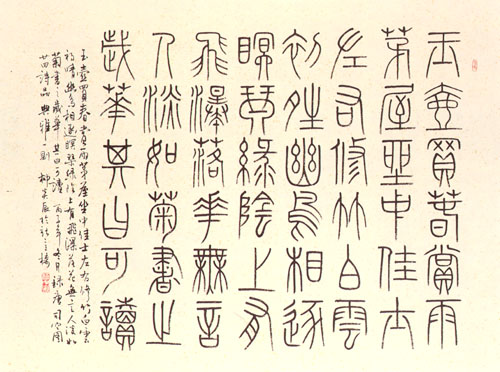 玉壺買春賞雨
茅屋坐中佳士
左右修竹白雲
初晴幽鳥相逐
眠琴綠陰上有
飛瀑落花無言
人淡如菊書之
歲華其曰可讀
玉壺買春賞雨茅屋坐中佳士左右修竹白雲
初晴幽鳥相逐眠琴綠陰上有飛瀑落花無言人淡如
菊書之歲華其曰可讀 丙子年冬月錄唐司空圖
廿四詩品典雅一則 柳